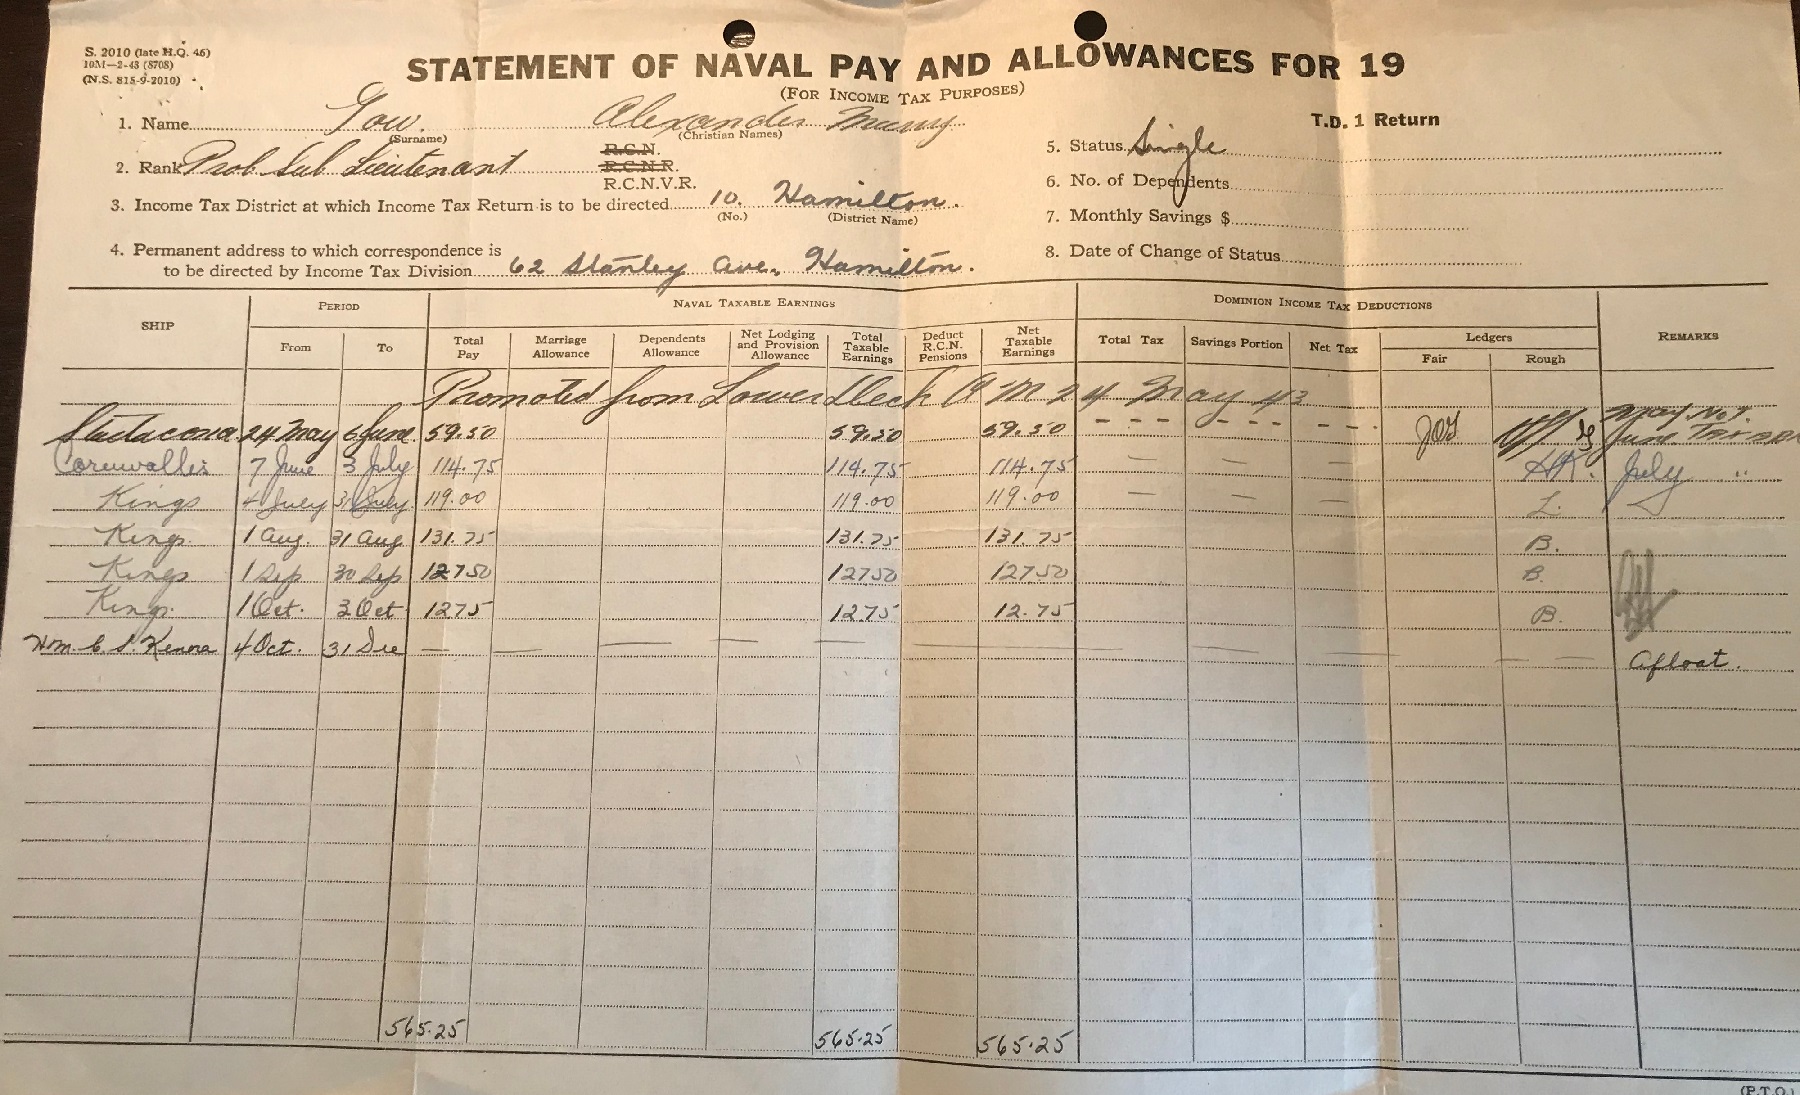 S. 2010 (late H.Q. 46)
10M—2-43 (8708)
(N.S. 815-9-2010)
STATEMENT OF NAVAL PAY AND ALLOWANCES FOR 19
(FOR INCOME TAX PURPOSES)
T.D. 1 Return
1. Name Gow. Alexander Murray
(Surname) (Christian Names)
R.C.N.
2. Rank Prob Sub Lieutenant R.C.N.R.
R.C.N.V.R.
3. Income Tax District at which Income Tax Return is to be directed 10. Hamilton.
(No.) (District Name)
4. Permanent address to which correspondence is
to be directed by Income Tax Division 62 Stanley Ave., Hamilton.
5. Status Single
6. No. of Dependents
7. Monthly Savings $
8. Date of Change of Status
SHIP PERIOD NAVAL TAXABLE EARNINGS DOMINION INCOME TAX DEDUCTIONS REMARKS
From To Total Pay Marriage Allowance Dependents Allowance Net Lodging and Provision Allowance Total Taxable Earnings Deduct R.C.N. Pensions Net Taxable Earnings Total Tax Savings Portion Net Tax Ledgers
Fair Rough
Promoted from Lower Deck 24 May 43
Stadacona 24 May 6 June 59.50 59.50 59.50 - - - - - - - - - May Not
June Taxable
Cornwallis 7 June 3 July 114.75 114.75 114.75 — — — July "
Kings 4 July 31 July 119.00 119.00 119.00 — — — L.
Kings 1 Aug. 31 Aug 131.75 131.75 131.75 B.
Kings 1 Sep 30 Sep 127.50 127.50 127.50 B.
Kings 1 Oct. 3 Oct 12.75 12.75 12.75 B.
H.M.C.S. Kenora 4 Oct. 31 Dec — — — — — — — — — — — — Afloat.
565.25 565.25 565.25
(P.T.O.)